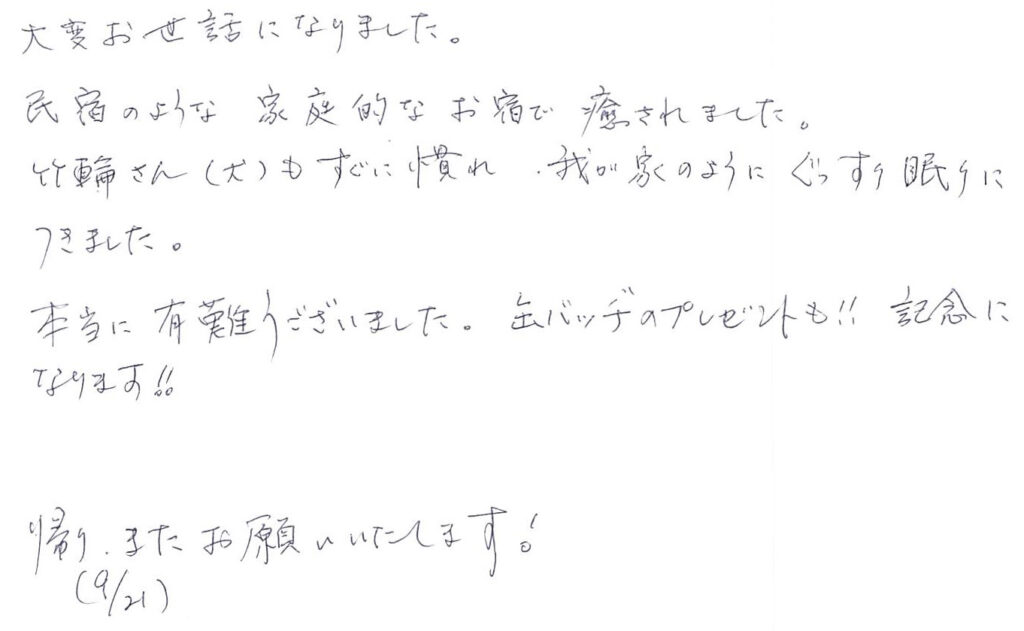 大変お世話になりました。
民宿のような 家庭的な お宿で 癒されました。
竹輪さん(犬)も すぐに 慣れ、我が家のように ぐっすり 眠りに
つきました。
本当に 有難うございました。 缶バッヂのプレゼントも!! 記念に
なります!!
帰り、また お願いいたします!
(9/21)